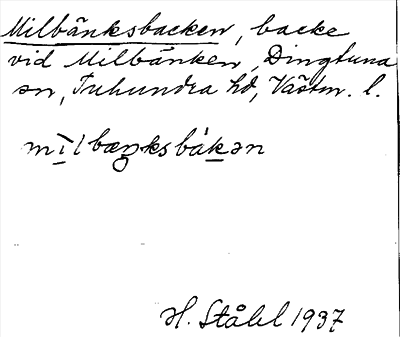 Milbänksbacken, backe
vid Milbänken, Dingtuna
sn, Tuhundra hd, Västm. l.
mìlbæŋksbákən
H. Ståhl 1937